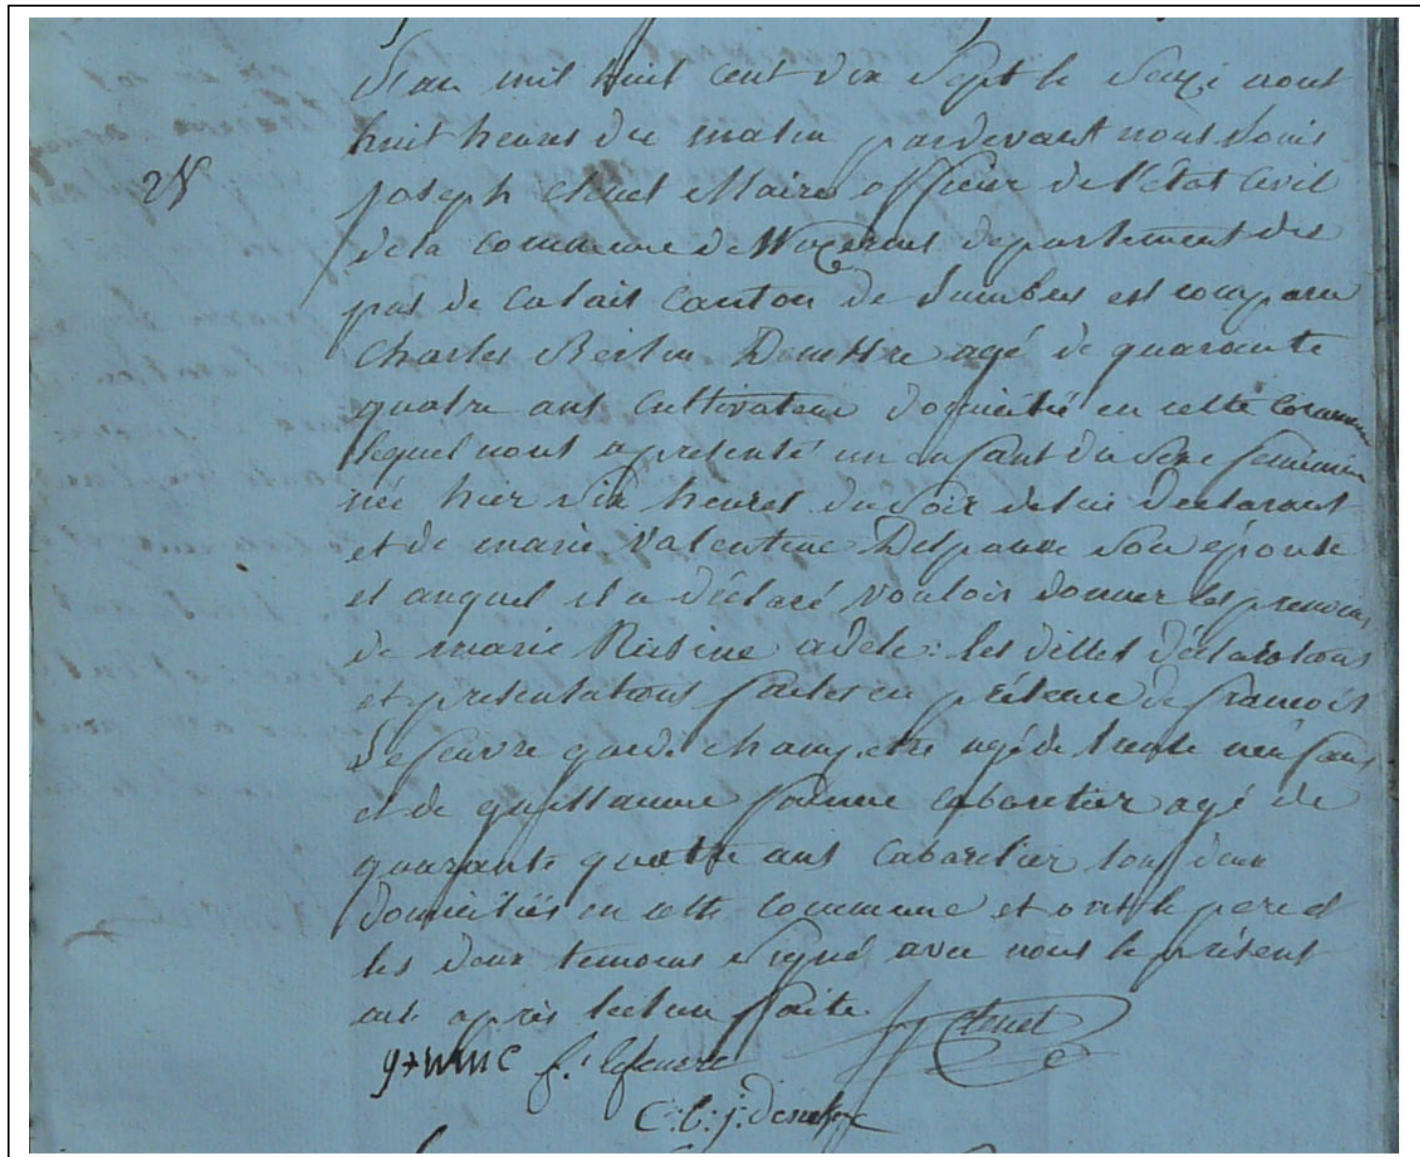 L'an mil huit cent dix sept le seize aout
huit heures du matin pardevant nous Louis
28
joseph Cluet Maire officier de l'état Civil
de la commune de departement du
pas de Calais Canton de Lumbres est comparu
Charles Bertin agé de quarante
quatre ans Cultivateur domicilié en cette Commune
lequel nous a presenté un enfant du sexe feminin
née hier six heures du soir de lui declarant
et de marie Valentine son épouse
et auquel il a déclaré vouloir donner les prenoms
de marie adele: les dittes déclarations
et presentations faites en présence de francois
Lefeuvre garde champetre agé de trente neuf ans
et de guillaume cabaretier agé de
quarante quattre ans Cabaretier tous deux
domiciliés en cette Commune et ont le pere et
les deux temoins signé avec nous le présent
acte après lecture faite. Cluet
f. lefeuvre
C: b: j: